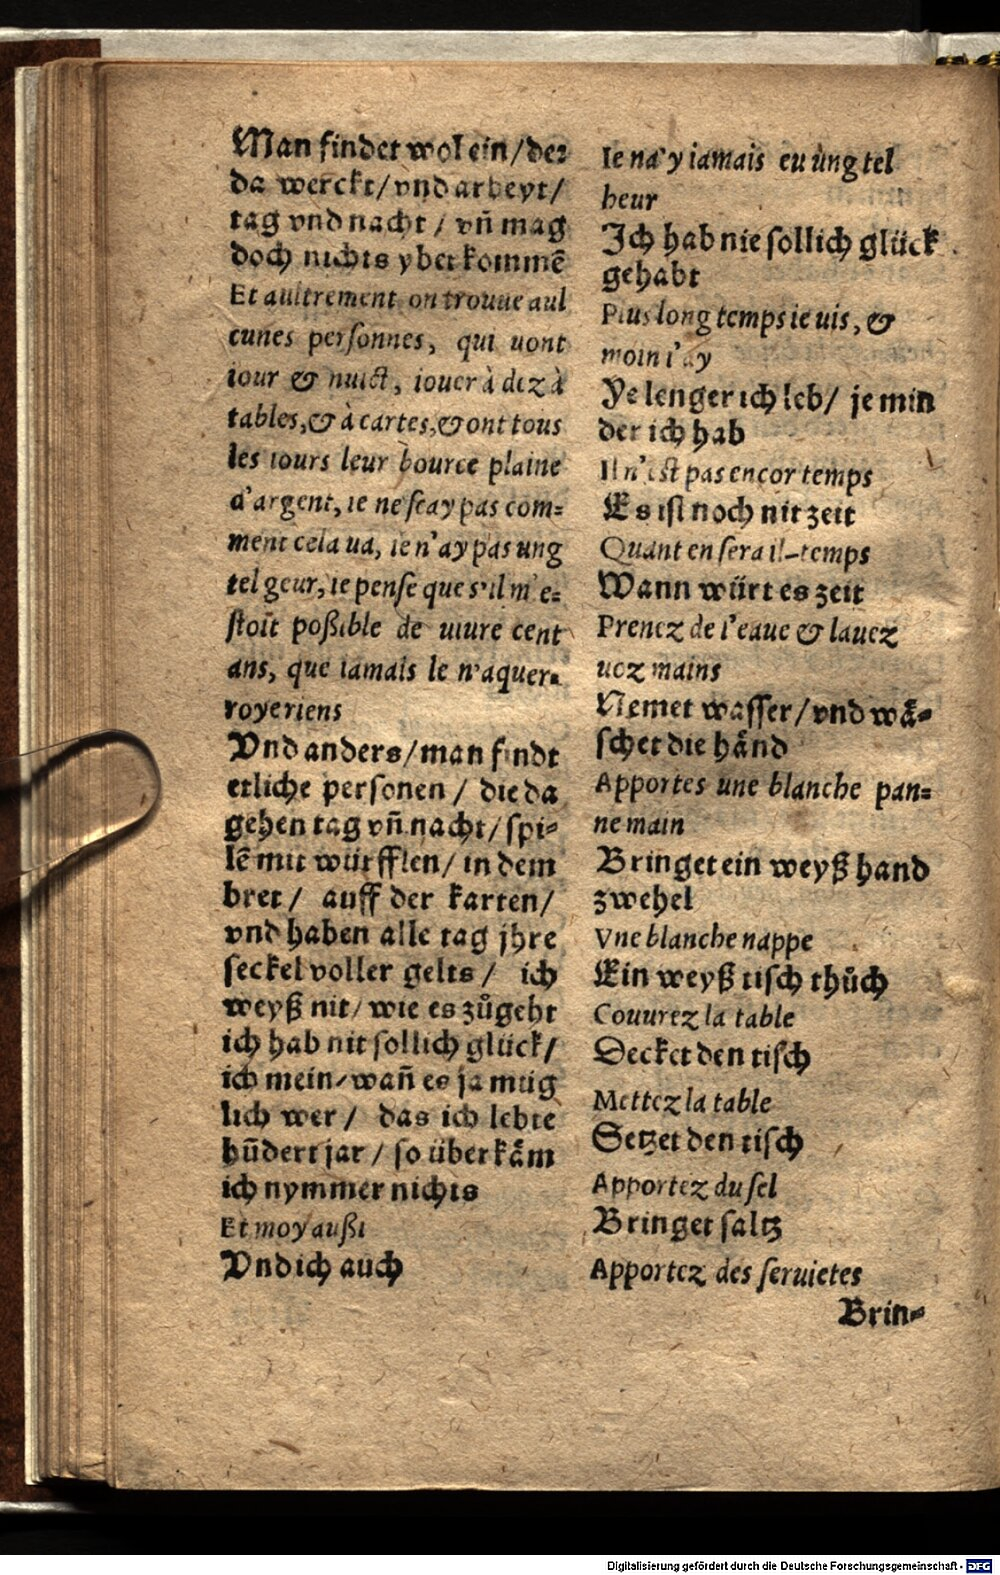 Man findet wol ein/der
da werckt/vnd arbeyt/
tag vnd nacht / vñ mag
doch nichts yberkommē
Et aultrement on trouue aul
cunes personnes, qui uont
iour & nuict, iouer à dez à
tables,& à cartes,& ont tous
les iours leur bource plaine
d'argent, ie ne scay pas com=
ment cela ua, ie n'ay pas ung
tel geur, ie pense que s'il m'e=
stoit poßible de uiure cent
ans, que iamais le n'aquer=
royeriens
Vnd anders/man findt
etliche personen / die da
gehen tag vñ nacht/ spi=
lē mit würfflen/ in dem
bret / auff der karten/
vnd haben alle tag jhre
seckel voller gelts / ich
weyß nit/ wie es zůgeht
ich hab nit sollich glück/
ich mein/wañ es ja müg
lich wer / das ich lebte
hūdert jar / so überkäm
ich nymmer nichts
Et moy außi
Vnd ich auch
Ie na'y iamais eu ùng tel
heur
Ich hab nie sollich glück
gehabt
Plus long temps ie uis, &
moin i'ay
Ye lenger ich leb/ je min
der ich hab
Il n'est pas encor temps
Es ist noch nit zeit
Quant en sera il-temps
Wann würt es zeit
Prenez de l'eaue & lauez
uoz mains
Nemet wasser/vnd wä=
schet die händ
Apportes une blanche pan=
ne main
Bringet ein weyß hand
zwehel
Vne blanche nappe
Ein weyß tisch thůch
Couurez la table
Decket den tisch
Mettez la table
Setzet den tisch
Apportez du sel
Bringet saltz
Apportez des seruietes
Brin=
Digitalisierung gefördert durch die Deutsche Forschungsgemeinschaft - DFG